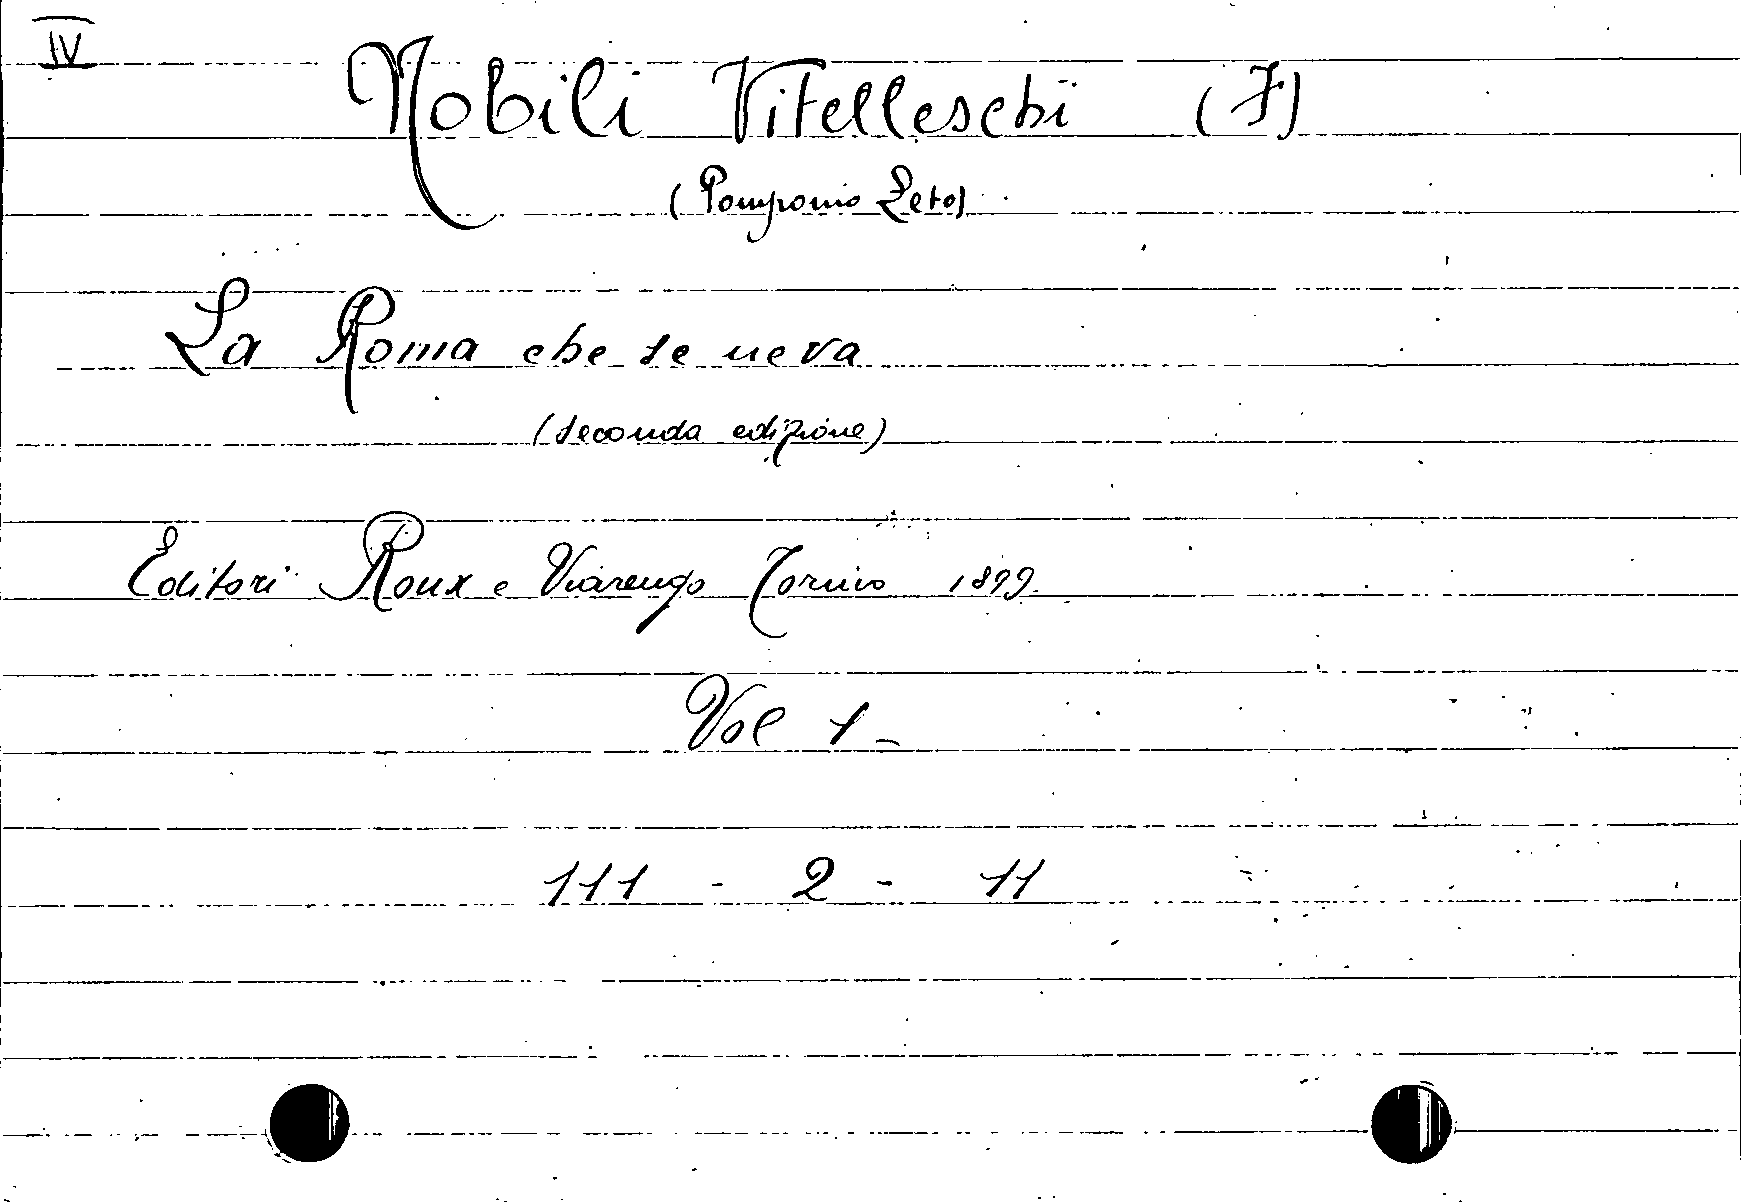 IV
Nobili Vitelleschi (F)
(Pomponio Leto)
La Roma che se ne va
(seconda edizione)
Editori Roux e Viarengo Torino 1899.
Vol 1-
111 - 2 - 11